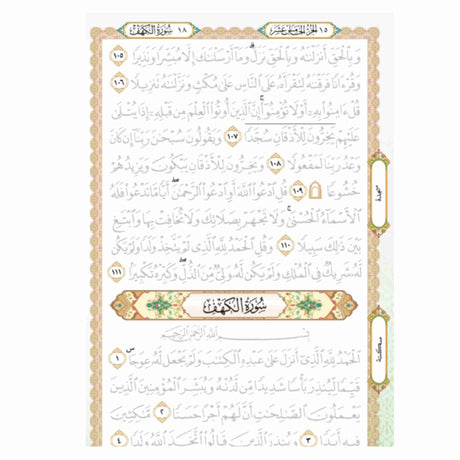 ١٥ الجزء الخامس عشر
١٨ سورة الكهف
وَبِالْحَقِّ أَنزَلْنَٰهُ وَبِالْحَقِّ نَزَلَ ۗ وَمَآ أَرْسَلْنَٰكَ إِلَّا مُبَشِّرًا وَنَذِيرًا ١٠٥
وَقُرْءَانًا فَرَقْنَٰهُ لِتَقْرَأَهُۥ عَلَى النَّاسِ عَلَىٰ مُكْثٍ وَنَزَّلْنَٰهُ تَنزِيلًا ١٠٦
قُلْ ءَامِنُوا بِهِۦٓ أَوْ لَا تُؤْمِنُوٓا ۚ إِنَّ الَّذِينَ أُوتُوا الْعِلْمَ مِن قَبْلِهِۦٓ إِذَا يُتْلَىٰ
عَلَيْهِمْ يَخِرُّونَ لِلْأَذْقَانِ سُجَّدًا ١٠٧ وَيَقُولُونَ سُبْحَٰنَ رَبِّنَآ إِن كَانَ
وَعْدُ رَبِّنَا لَمَفْعُولًا ١٠٨ وَيَخِرُّونَ لِلْأَذْقَانِ يَبْكُونَ وَيَزِيدُهُمْ
خُشُوعًا ۩ ١٠٩ قُلِ ادْعُوا اللَّهَ أَوِ ادْعُوا الرَّحْمَٰنَ ۖ أَيًّا مَّا تَدْعُوا فَلَهُ
الْأَسْمَآءُ الْحُسْنَىٰ ۚ وَلَا تَجْهَرْ بِصَلَاتِكَ وَلَا تُخَافِتْ بِهَا وَابْتَغِ
بَيْنَ ذَٰلِكَ سَبِيلًا ١١٠ وَقُلِ الْحَمْدُ لِلَّهِ الَّذِي لَمْ يَتَّخِذْ وَلَدًا وَلَمْ يَكُن
لَّهُۥ شَرِيكٌ فِي الْمُلْكِ وَلَمْ يَكُن لَّهُۥ وَلِيٌّ مِّنَ الذُّلِّ ۖ وَكَبِّرْهُ تَكْبِيرًا ١١١
سُورَةُ الْكَهْفِ
بِسْمِ اللَّهِ الرَّحْمَٰنِ الرَّحِيمِ
الْحَمْدُ لِلَّهِ الَّذِيٓ أَنزَلَ عَلَىٰ عَبْدِهِ الْكِتَٰبَ وَلَمْ يَجْعَل لَّهُۥ عِوَجًا ۜ ١
قَيِّمًا لِّيُنذِرَ بَأْسًا شَدِيدًا مِّن لَّدُنْهُ وَيُبَشِّرَ الْمُؤْمِنِينَ الَّذِينَ
يَعْمَلُونَ الصَّٰلِحَٰتِ أَنَّ لَهُمْ أَجْرًا حَسَنًا ٢ مَّٰكِثِينَ
فِيهِ أَبَدًا ٣ وَيُنذِرَ الَّذِينَ قَالُوا اتَّخَذَ اللَّهُ وَلَدًا ٤
سجدة
سكتة